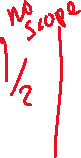 no
scope
1/2